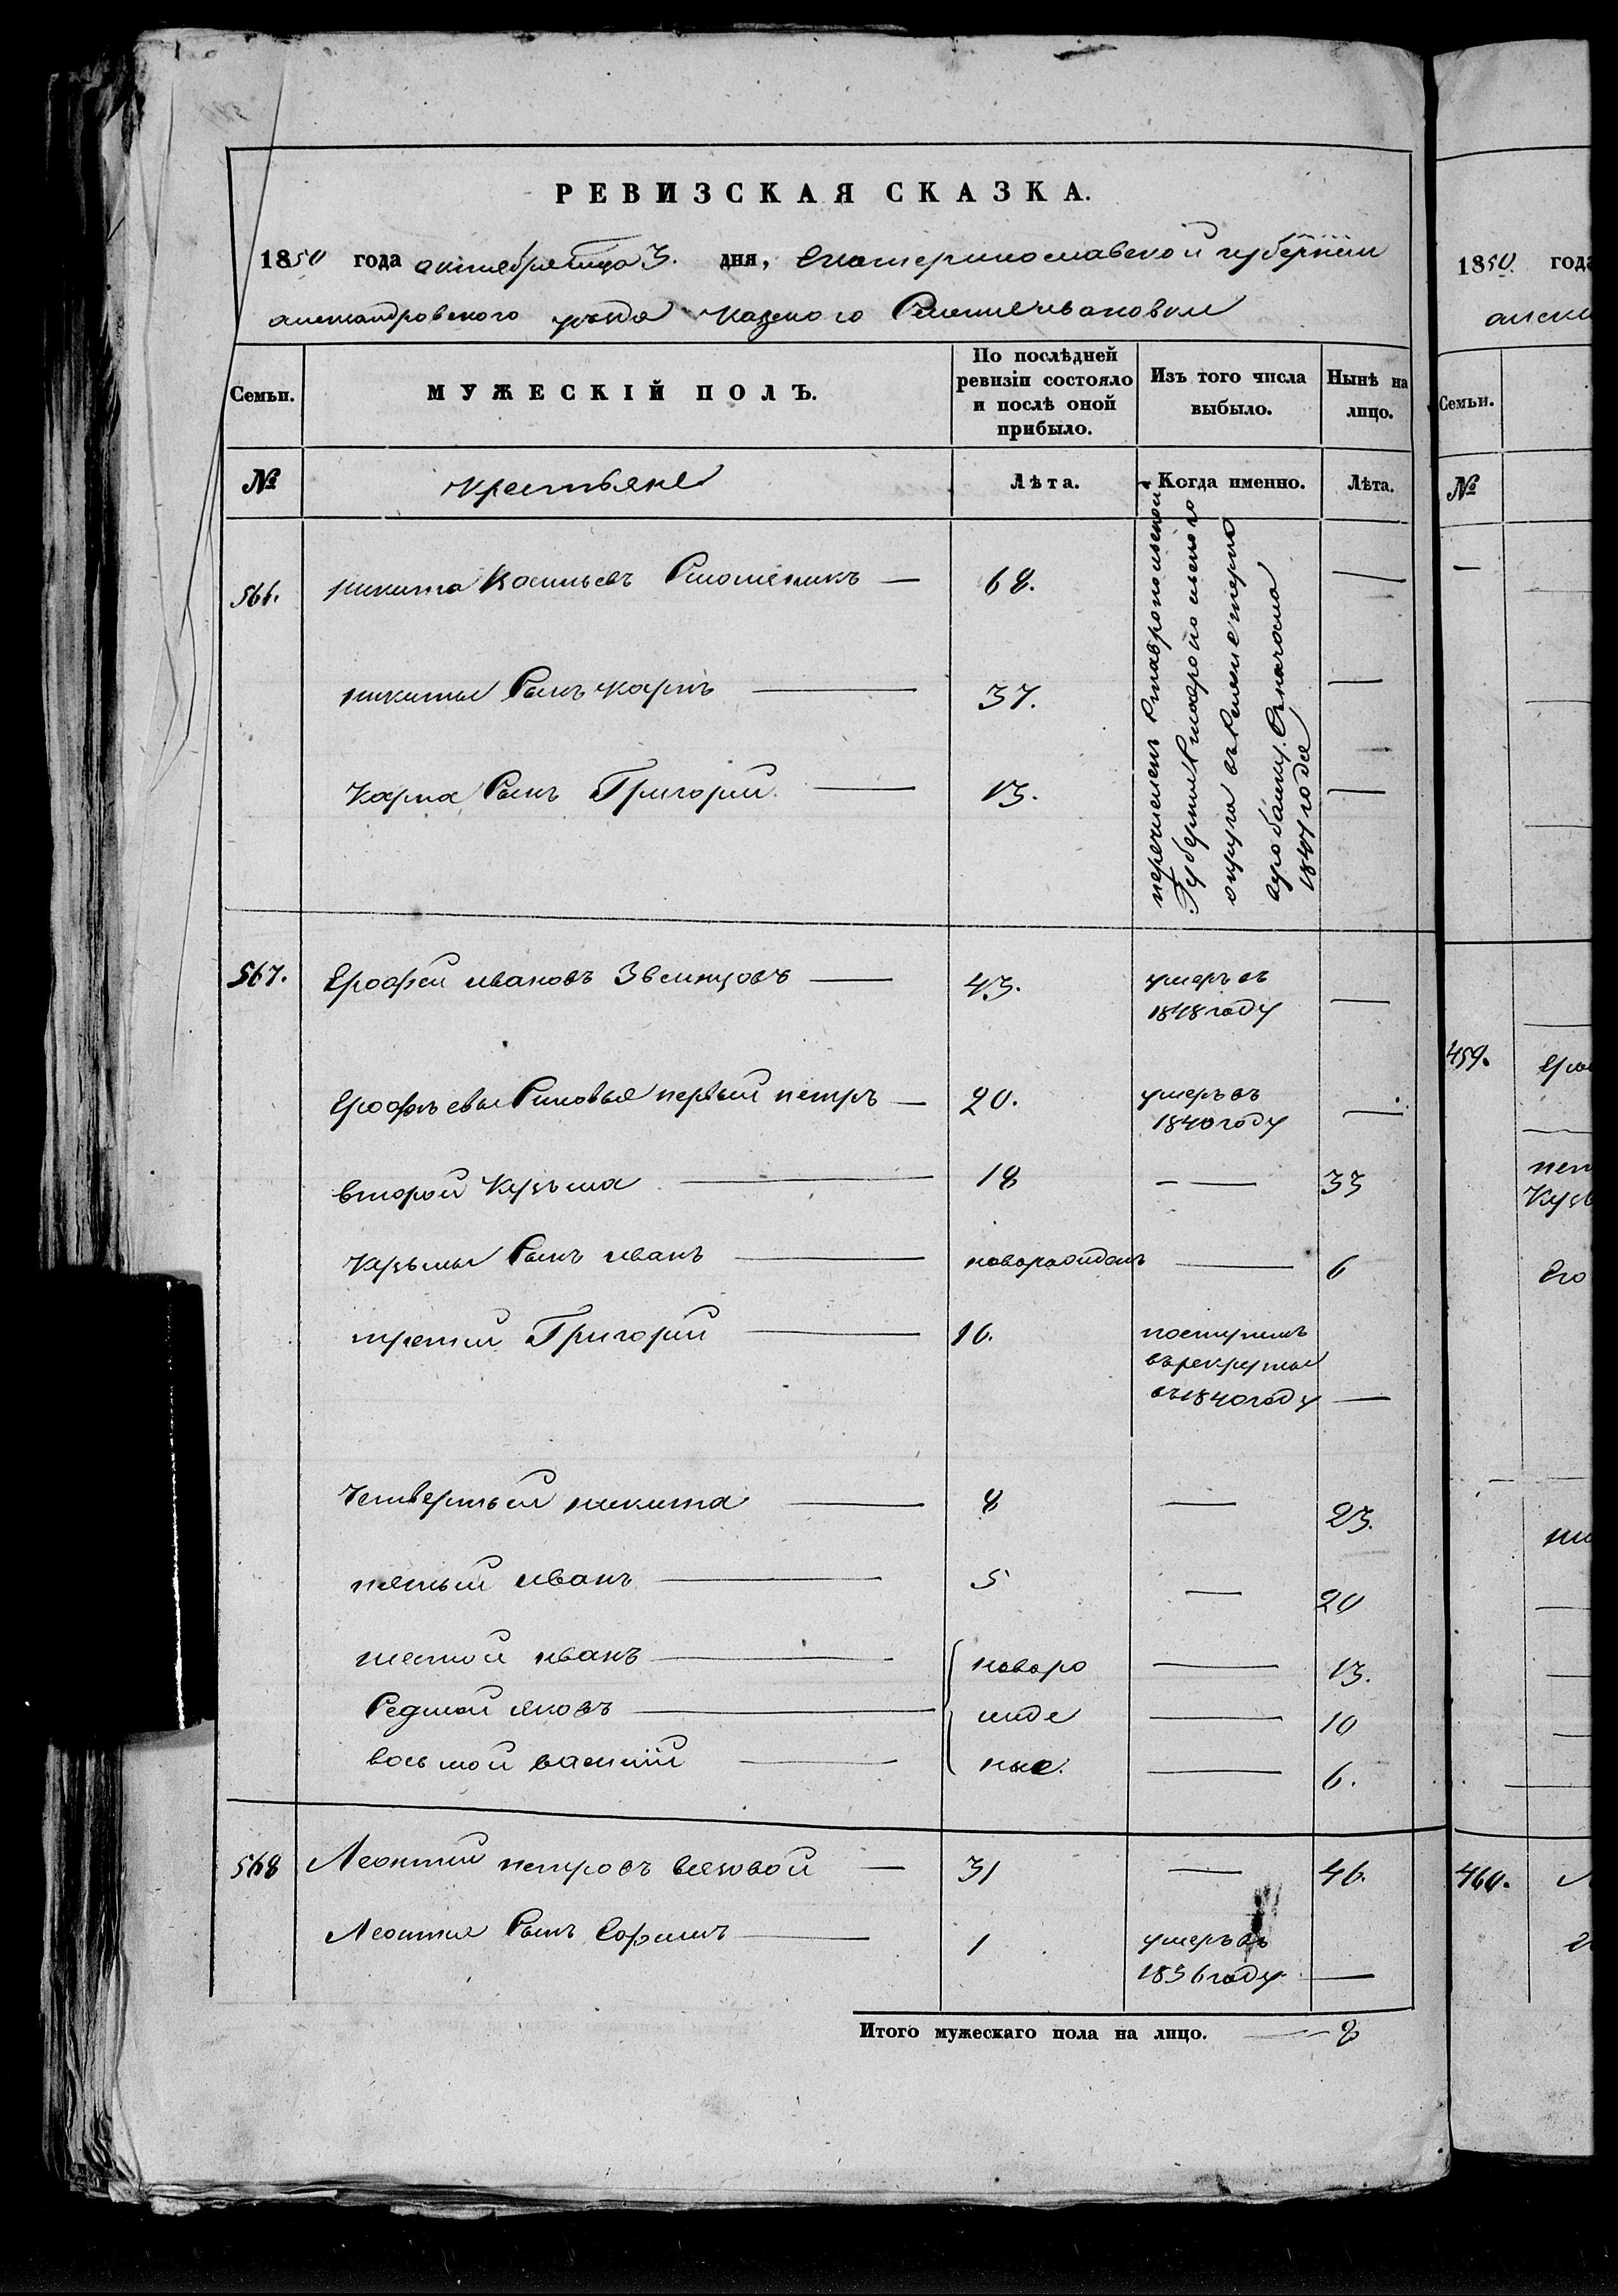 РЕВИЗСКАЯ СКАЗКА.
1850 года октября месяца 3. дня, Екатеринославской губернии
александровского уезда казеного Селения
Семьи.
МУЖЕСКІЙ ПОЛЪ.
По послѣдней ревизіи состояло и послѣ оной прибыло.
Изъ того числа выбыло.
Нынѣ на лицо.
№
крестьяне
Лѣта.
Когда именно.
Лѣта.
566. никита Васильевъ — 68. —
никиты Сынъ карпъ — 37. —
Карпа Сынъ Григорий — 13. —
перечислен Ставропольской
Губернии Ставропольского
округа въ Селение
1847 года
567. Ерофей ивановъ Звенцовъ — 43. умеръ въ
1848 году —
Ерофѣевы Синовья первый петръ — 20. умеръ въ
1840 году —
второй Кузьма — 18 — — 33
Кузьмы Сынъ иванъ — новорожденъ — 6
третий Григорий — 16. поступилъ
въ рекруты
въ 1840 году —
Четвертый никита — 8 — 23.
пятый иванъ — 5 — 20
шестой иванъ — новоро — 13.
Седмой яковъ — жде — 10
восьмой василий — ные. — 6.
568 Леонтий петровъ — 31 — 46.
Леонтия Сынъ — 1 умеръ въ
1836 году —
Итого мужескаго пола на лицо. — 8
1850. года
Семьи.
№
—
459.
460.